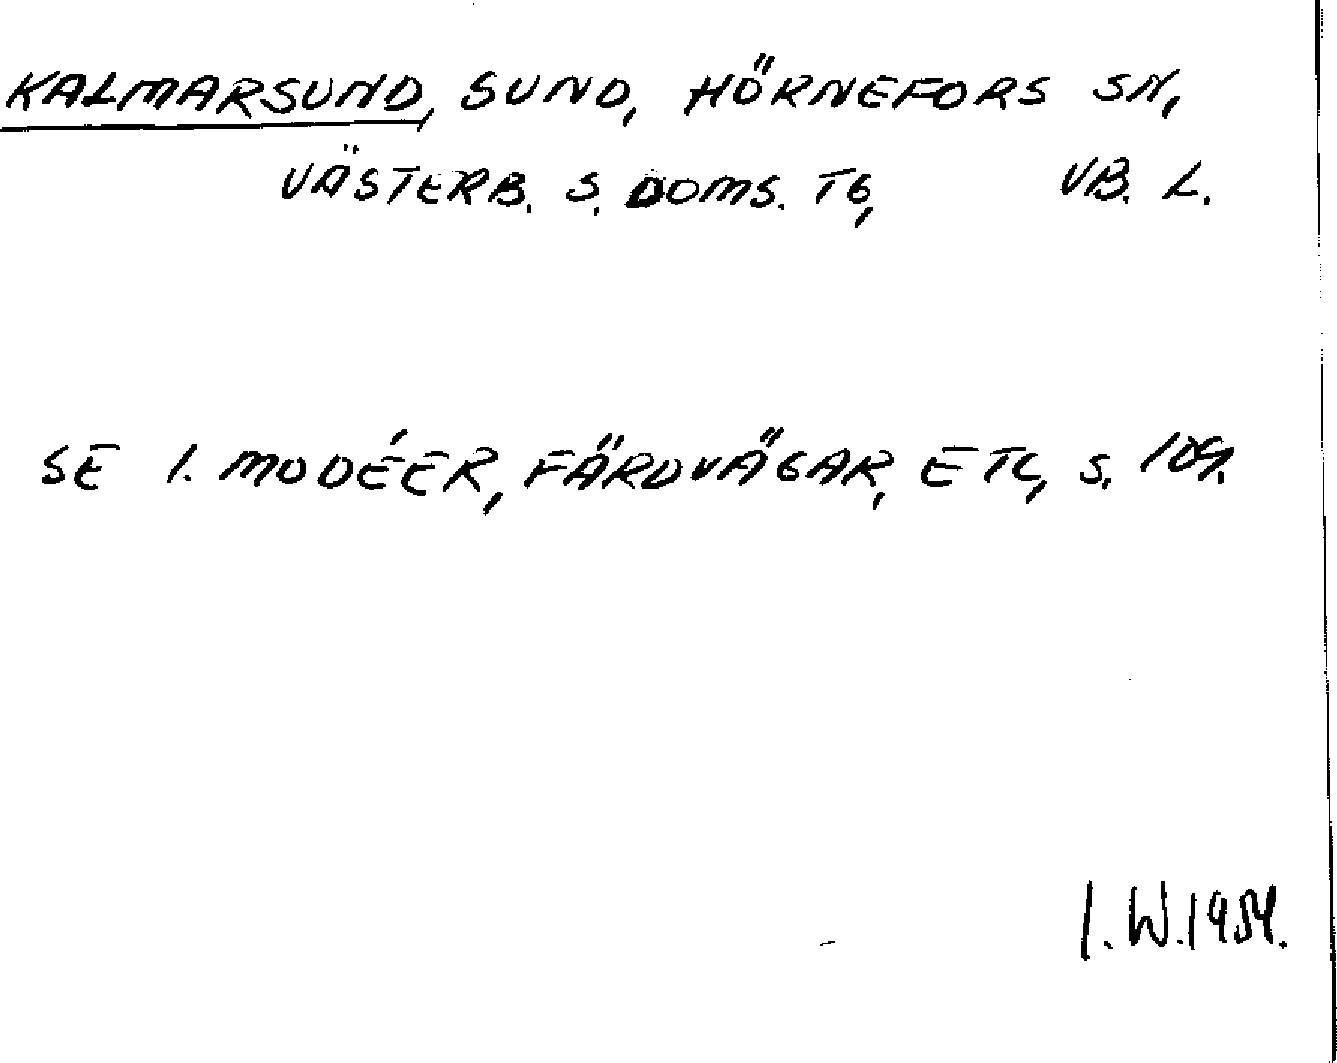 KALMARSUND, SUND, HÖRNEFORS SN,
VÄSTERB. S. DOMS. TG, VB. L.
SE I. MODÉER, FÄRDVÄGAR, ETC, S. 109.
I. W. 1954.